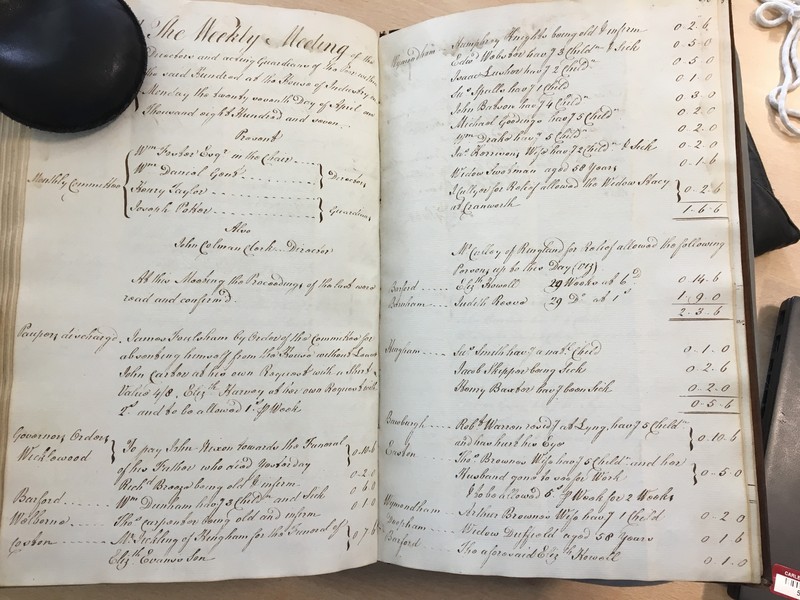 The Weekly Meeting of the
Directors and acting Guardians of the Poor within
the said Hundred at the House of Industry on
Monday the twenty seventh Day of April one
Thousand eight Hundred and seven.
Present
Wm Foster Esqr in the Chair
Wm Daniel Gent
Directors
Monthly Committee
Henry Taylor
Joseph Parker
Guardians
Also
John Colman Clerk Director
At this Meeting the Proceedings of the last were
read and confirm'd
Paupers discharge James Foulsham by Order of the Committee for
absenting himself from the House without Leave
John Carter at his own Request with a Shirt
Value 4/8. Elizth Harvey at her own Request with
2s and to be allowed 1s P Week
Governors Orders
Wicklewood
To pay John Nixon towards the Funeral
of his Father who died Yesterday
0-10-6
Robt Breeze being old & infirm 0-2-0
Barford Wm Dunham hav'g 3 Childn and Sick 0-6-0
Welborne Thos Carpenter being old and infirm 0-1-0
Coston Mr Tickling of Hingham for the Funeral of
Elizth Evans's Son
0-7-6
Wymondham Humphery Knights being old & infirm 0-2-6
Edwd Webster hav'g 3 Childn & Sick 0-5-0
Isaac Lusher hav'g 2 Childn 0-5-0
Jas Spalls hav'g 1 Child 0-1-0
John Batson hav'g 4 Childn 0-3-0
Michael Goodings hav'g 5 Childn 0-2-0
Wm Drake hav'g 5 Childn 0-2-0
Jas Harrisons Wife hav'g 2 Childn & Sick 0-2-0
Widow Swotman aged 58 Years 0-1-6
for Relief allowed the Widow Stacy
at Cranworth
0-2-6
1-6-6
Mr Culley of Ringland for Relief allowed the following
Persons up to this Day (viz)
Barford Elizth Howell 29 Weeks at 6d 0-14-6
Barnham Judith Reeve 29 Do at 1s 1-9-0
2-3-6
Hingham Jas Smith hav'g a natl Child 0-1-0
Jacob Skipper being Sick 0-2-6
Henry Baxter hav'g been Sick 0-2-0
0-5-6
Bawburgh Robt Warren resid'g at Lyng, hav'g 5 Childn
and hav'g hurt his Eye
0-10-6
Easton Thos Brownes Wife hav'g 5 Childn and her
Husband gone to seek for Work
0-5-0
& to be allowed 5s P Week for 2 Weeks
Wymondham Arthur Brownes Wife hav'g 1 Child 0-2-0
Deopham Widow Duffield aged 58 Years 0-1-6
Barford The aforesaid Elizth Howell 0-1-0